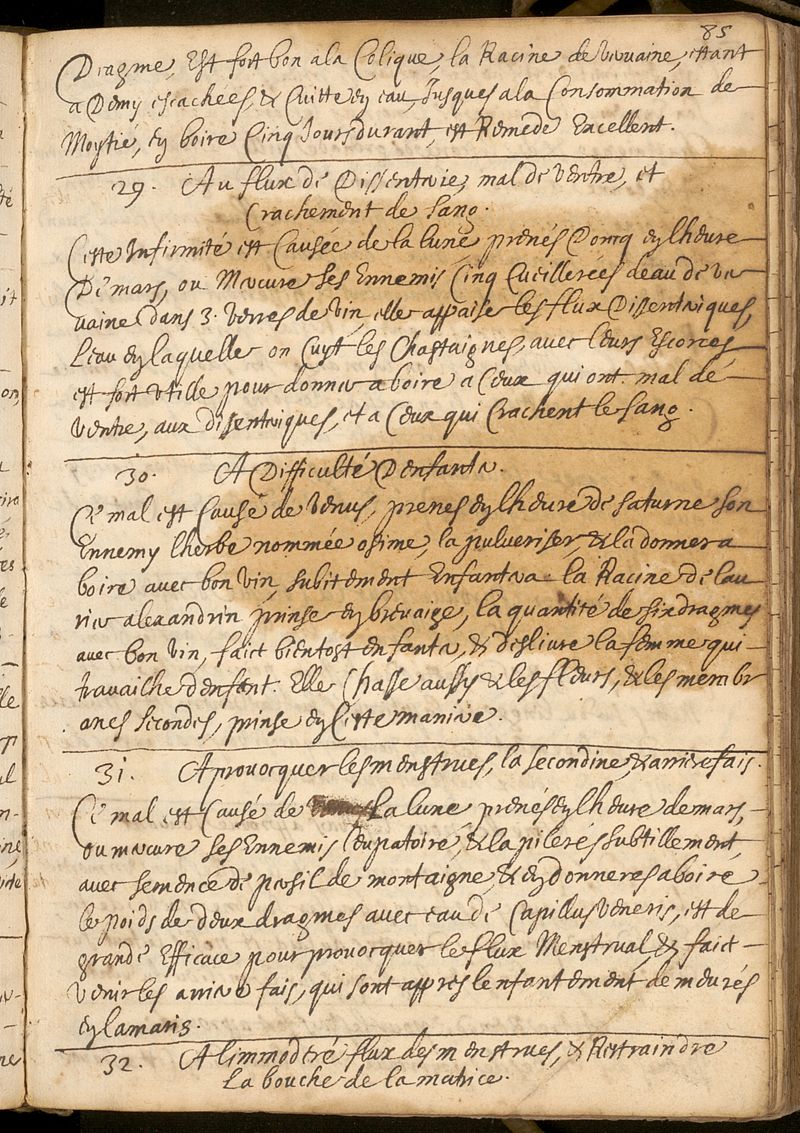 85
Dragme, Est fort bon a la Colique, la Racine de Vervaine, estant
a Demy escachees, & Cuitte en eau, Jusques a la Consommation de
Moytié, en boire Cinq Jours durant, est Remede Excellent.
29. Au flux de Dissenterie, mal de Ventre, et
Crachement de sang.
Ceste Infirmité est Causée de la lune, prenés Doncq en lheure
De mars, ou Mercure ses Ennemis Cinq Cueillerées deau de ver
vaine dans 3. Verres de vin, elle appaise les flux Dissenteriques,
Leau en laquelle on Cuyt les Chastaignes, avec leurs Escorces
est fort utille pour donner a boire a Ceux qui ont mal de
Ventre, aux dissenteriques, et a Ceux qui Crachent le sang.
30. A Difficulté Denfanter.
Ce mal est Causé de Venus, prenes en lheure de saturne son
Ennemy lherbe nommée osime, la pulveriser, & la donner a
boire avec bon vin, subitement Enfantera la Racine de lau
rier alexandrin prinse en brevaige, la quantité de six dragmes
avec bon vin, faict bientost enfanter, & deslivre la femme qui
travailhe denfent. Elle Chasse aussy & les fleurs, & les membr
anes secondes, prinse en Ceste maniere.
31. A provocquer les menstrues, la secondine, & arrierefais.
Ce mal est Causé de la lune, prenés en lheure de mars,
ou mercure ses Ennemis leupatoire, & la pilerés subtillement,
avec semence de persil de montaigne, & en donneres a boire
le poids de deux dragmes avec eau de Capillus Veneris, est de
grande Efficace pour provocquer le flux Menstrual, & faict
venir les arriere fais, qui sont appres lenfantement demeurés
en la maris.
32. A limmoderé flux des menstrues, & Restraindre
La bouche de la matrice.